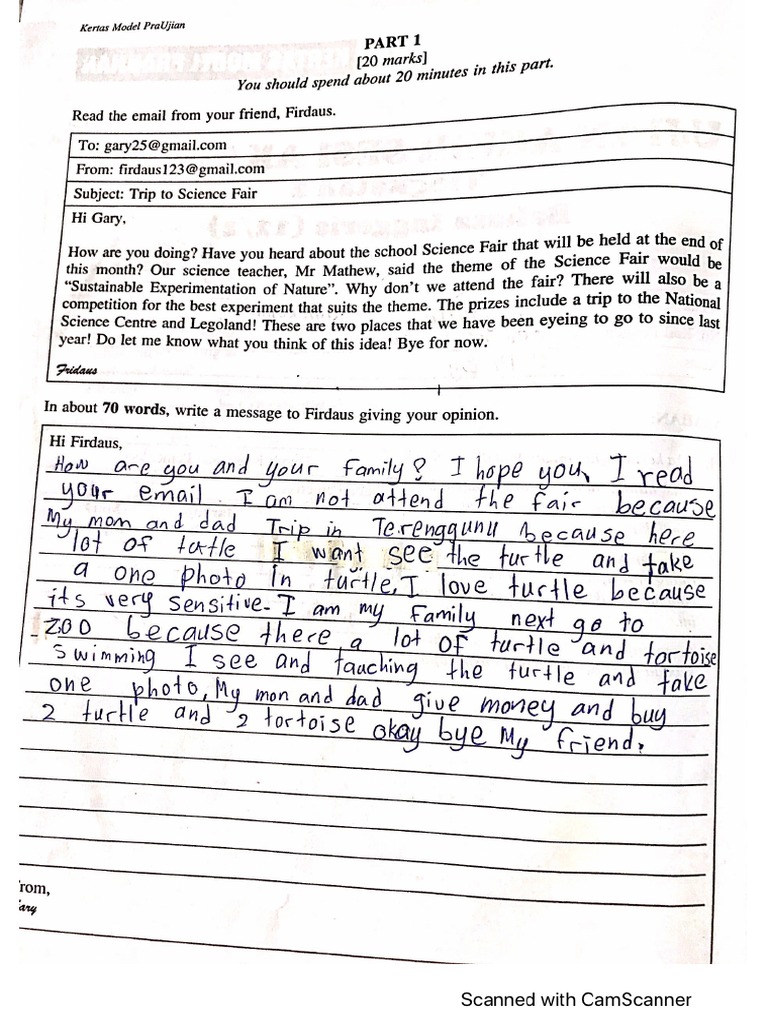 Kertas Model PraUjian
PART 1
[20 marks]
You should spend about 20 minutes in this part.
Read the email from your friend, Firdaus.
To: gary25@gmail.com
From: firdaus123@gmail.com
Subject: Trip to Science Fair
Hi Gary,
How are you doing? Have you heard about the school Science Fair that will be held at the end of
this month? Our science teacher, Mr Mathew, said the theme of the Science Fair would be
“Sustainable Experimentation of Nature”. Why don’t we attend the fair? There will also be a
competition for the best experiment that suits the theme. The prizes include a trip to the National
Science Centre and Legoland! These are two places that we have been eyeing to go to since last
year! Do let me know what you think of this idea! Bye for now.
Fridaus
In about 70 words, write a message to Firdaus giving your opinion.
Hi Firdaus,
How are you and your family? I hope you, I read
your email. I am not attend the fair because
My mom and dad Trip in Terenggunu because here
lot of tutle I want see the turtle and take
a one photo in turtle, I love turtle because
its very sensitive. I am my family next go to
zoo because there a lot of turtle and tortoise
swimming I see and tauching the turtle and take
one photo, My mon and dad give money and buy
2 turtle and 2 tortoise okay bye My friend.
rom,
ary
Scanned with CamScanner